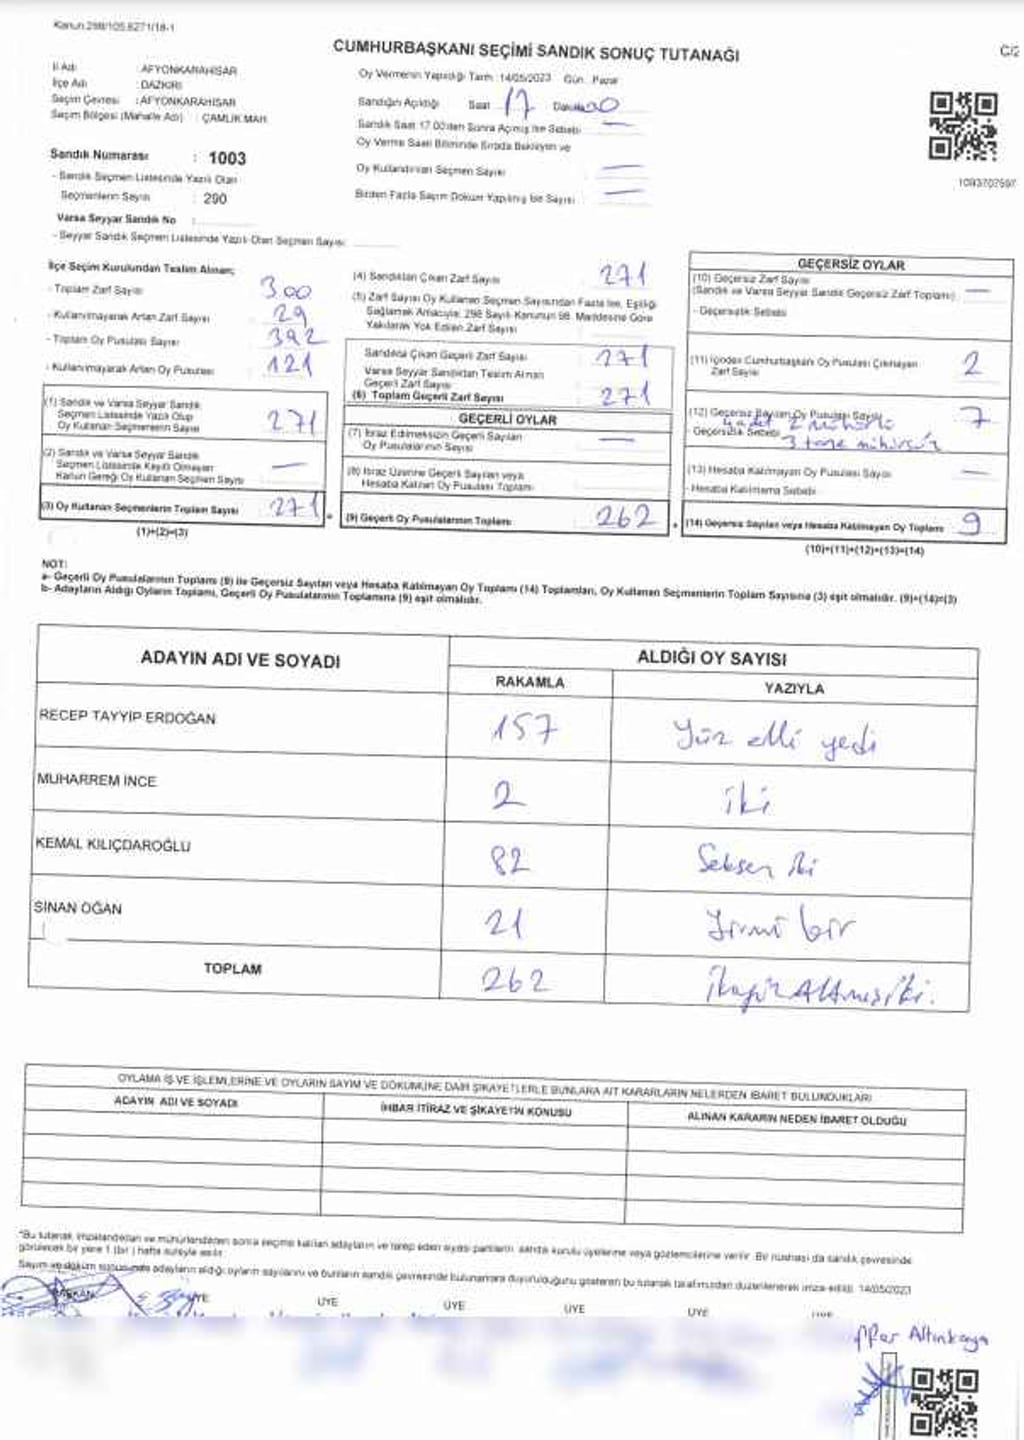 Kanun 298/105,6271/18-1
CUMHURBAŞKANI SEÇİMİ SANDIK SONUÇ TUTANAĞI
C/2
İl Adı : AFYONKARAHİSAR
İlçe Adı : DAZKIRI
Seçim Çevresi : AFYONKARAHİSAR
Seçim Bölgesi (Mahalle Adı) : ÇAMLIK MAH.
Oy Vermenin Yapıldığı Tarih : 14/05/2023 Gün : Pazar
Sandığın Açıldığı Saat 17 Dakika 00
Sandık Saat 17.00'den Sonra Açılmış İse Sebebi : —
Oy Verme Saati Bitiminde Sırada Bekleyen ve
Oy Kullandırılan Seçmen Sayısı : —
Birden Fazla Sayım Döküm Yapılmış İse Sayısı : —
1093707597
Sandık Numarası : 1003
- Sandık Seçmen Listesinde Yazılı Olan
Seçmenlerin Sayısı : 290
Varsa Seyyar Sandık No :
- Seyyar Sandık Seçmen Listesinde Yazılı Olan Seçmen Sayısı:
İlçe Seçim Kurulundan Teslim Alınan;
- Toplam Zarf Sayısı : 300
- Kullanılmayarak Artan Zarf Sayısı : 29
- Toplam Oy Pusulası Sayısı : 392
- Kullanılmayarak Artan Oy Pusulası : 121
(1) Sandık ve Varsa Seyyar Sandık
Seçmen Listesinde Yazılı Olup
Oy Kullanan Seçmenlerin Sayısı : 271
(2) Sandık ve Varsa Seyyar Sandık
Seçmen Listesinde Kayıtlı Olmayan
Kanun Gereği Oy Kullanan Seçmen Sayısı : —
(3) Oy Kullanan Seçmenlerin Toplam Sayısı : 271
(1)+(2)=(3)
(4) Sandıktan Çıkan Zarf Sayısı : 271
(5) Zarf Sayısı Oy Kullanan Seçmen Sayısından Fazla İse, Eşitliği
Sağlamak Amacıyla, 298 Sayılı Kanunun 98. Maddesine Göre
Yakılarak Yok Edilen Zarf Sayısı :
Sandıkta Çıkan Geçerli Zarf Sayısı : 271
Varsa Seyyar Sandıktan Teslim Alınan
Geçerli Zarf Sayısı :
(6) Toplam Geçerli Zarf Sayısı : 271
GEÇERLİ OYLAR
(7) İtiraz Edilmeksizin Geçerli Sayılan
Oy Pusulalarının Sayısı : —
(8) İtiraz Üzerine Geçerli Sayılan veya
Hesaba Katılan Oy Pusulası Toplamı :
(9) Geçerli Oy Pusulalarının Toplamı : 262
GEÇERSİZ OYLAR
(10) Geçersiz Zarf Sayısı
(Sandık ve Varsa Seyyar Sandık Geçersiz Zarf Toplamı) : —
- Geçersizlik Sebebi :
(11) İçinden Cumhurbaşkanı Oy Pusulası Çıkmayan
Zarf Sayısı : 2
(12) Geçersiz Sayılan Oy Pusulası Sayısı : 7
4 adet 2 mühürlü
- Geçersizlik Sebebi :
3 tane mühürsüz
(13) Hesaba Katılmayan Oy Pusulası Sayısı : —
- Hesaba Katılmama Sebebi :
(14) Geçersiz Sayılan veya Hesaba Katılmayan Oy Toplamı : 9
(10)+(11)+(12)+(13)=(14)
NOT:
a- Geçerli Oy Pusulalarının Toplamı (9) ile Geçersiz Sayılan veya Hesaba Katılmayan Oy Toplamı (14) Toplamları, Oy Kullanan Seçmenlerin Toplam Sayısına (3) eşit olmalıdır. (9)+(14)=(3)
b- Adayların Aldığı Oyların Toplamı, Geçerli Oy Pusulalarının Toplamına (9) eşit olmalıdır.
ADAYIN ADI VE SOYADI
ALDIĞI OY SAYISI
RAKAMLA YAZIYLA
RECEP TAYYİP ERDOĞAN 157 Yüz elli yedi
MUHARREM İNCE 2 iki
KEMAL KILIÇDAROĞLU 82 Seksen iki
SİNAN OĞAN 21 Yirmi bir
TOPLAM 262 İkiyüz Altmış iki.
OYLAMA İŞ VE İŞLEMLERİNE VE OYLARIN SAYIM VE DÖKÜMÜNE DAİR ŞİKAYETLERLE BUNLARA AİT KARARLARIN NELERDEN İBARET BULUNDUKLARI
ADAYIN ADI VE SOYADI İHBAR İTİRAZ VE ŞİKAYETİN KONUSU ALINAN KARARIN NEDEN İBARET OLDUĞU
*Bu tutanak imzalandıktan ve mühürlendikten sonra seçime katılan adayların ve talep eden siyasi partilerin sandık kurulu üyelerine veya gözlemcilerine verilir. Bir nüshası da sandık çevresinde
görülecek bir yere 1 (bir) hafta süreyle asılır.
Sayım ve döküm sonucunda adayların aldığı oyların sayılarını ve bunların sandık çevresinde bulunanlara duyurulduğunu gösteren bu tutanak tarafımızdan düzenlenerek imza edildi. 14/05/2023
BAŞKAN ÜYE ÜYE ÜYE ÜYE ÜYE ÜYE
Altınkaya